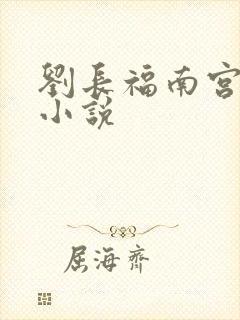 劉長福南宮
小說
屈海齊